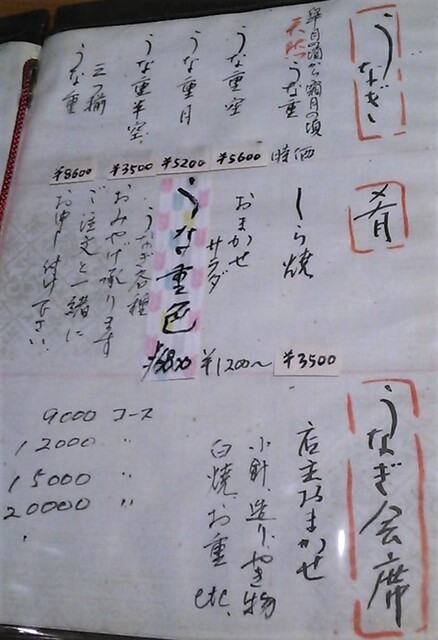 うなぎ
皐月頃から霜月の頃
天然うな重
時価
うな重空
¥5600
うな重月
¥5200
うな重半空
¥3500
三つ揃
うな重
¥8600
肴
しら焼
¥3500
おまかせ
サラダ
¥1200〜
うな重色
うなぎ各種
おみやげ承ります
ご注文と一緒に
お申し付け下さい
うなぎ会席
店主おまかせ
小針、造り、やき物
白焼、お重
etc.
9000 コース
12000 〃
15000 〃
20000 〃